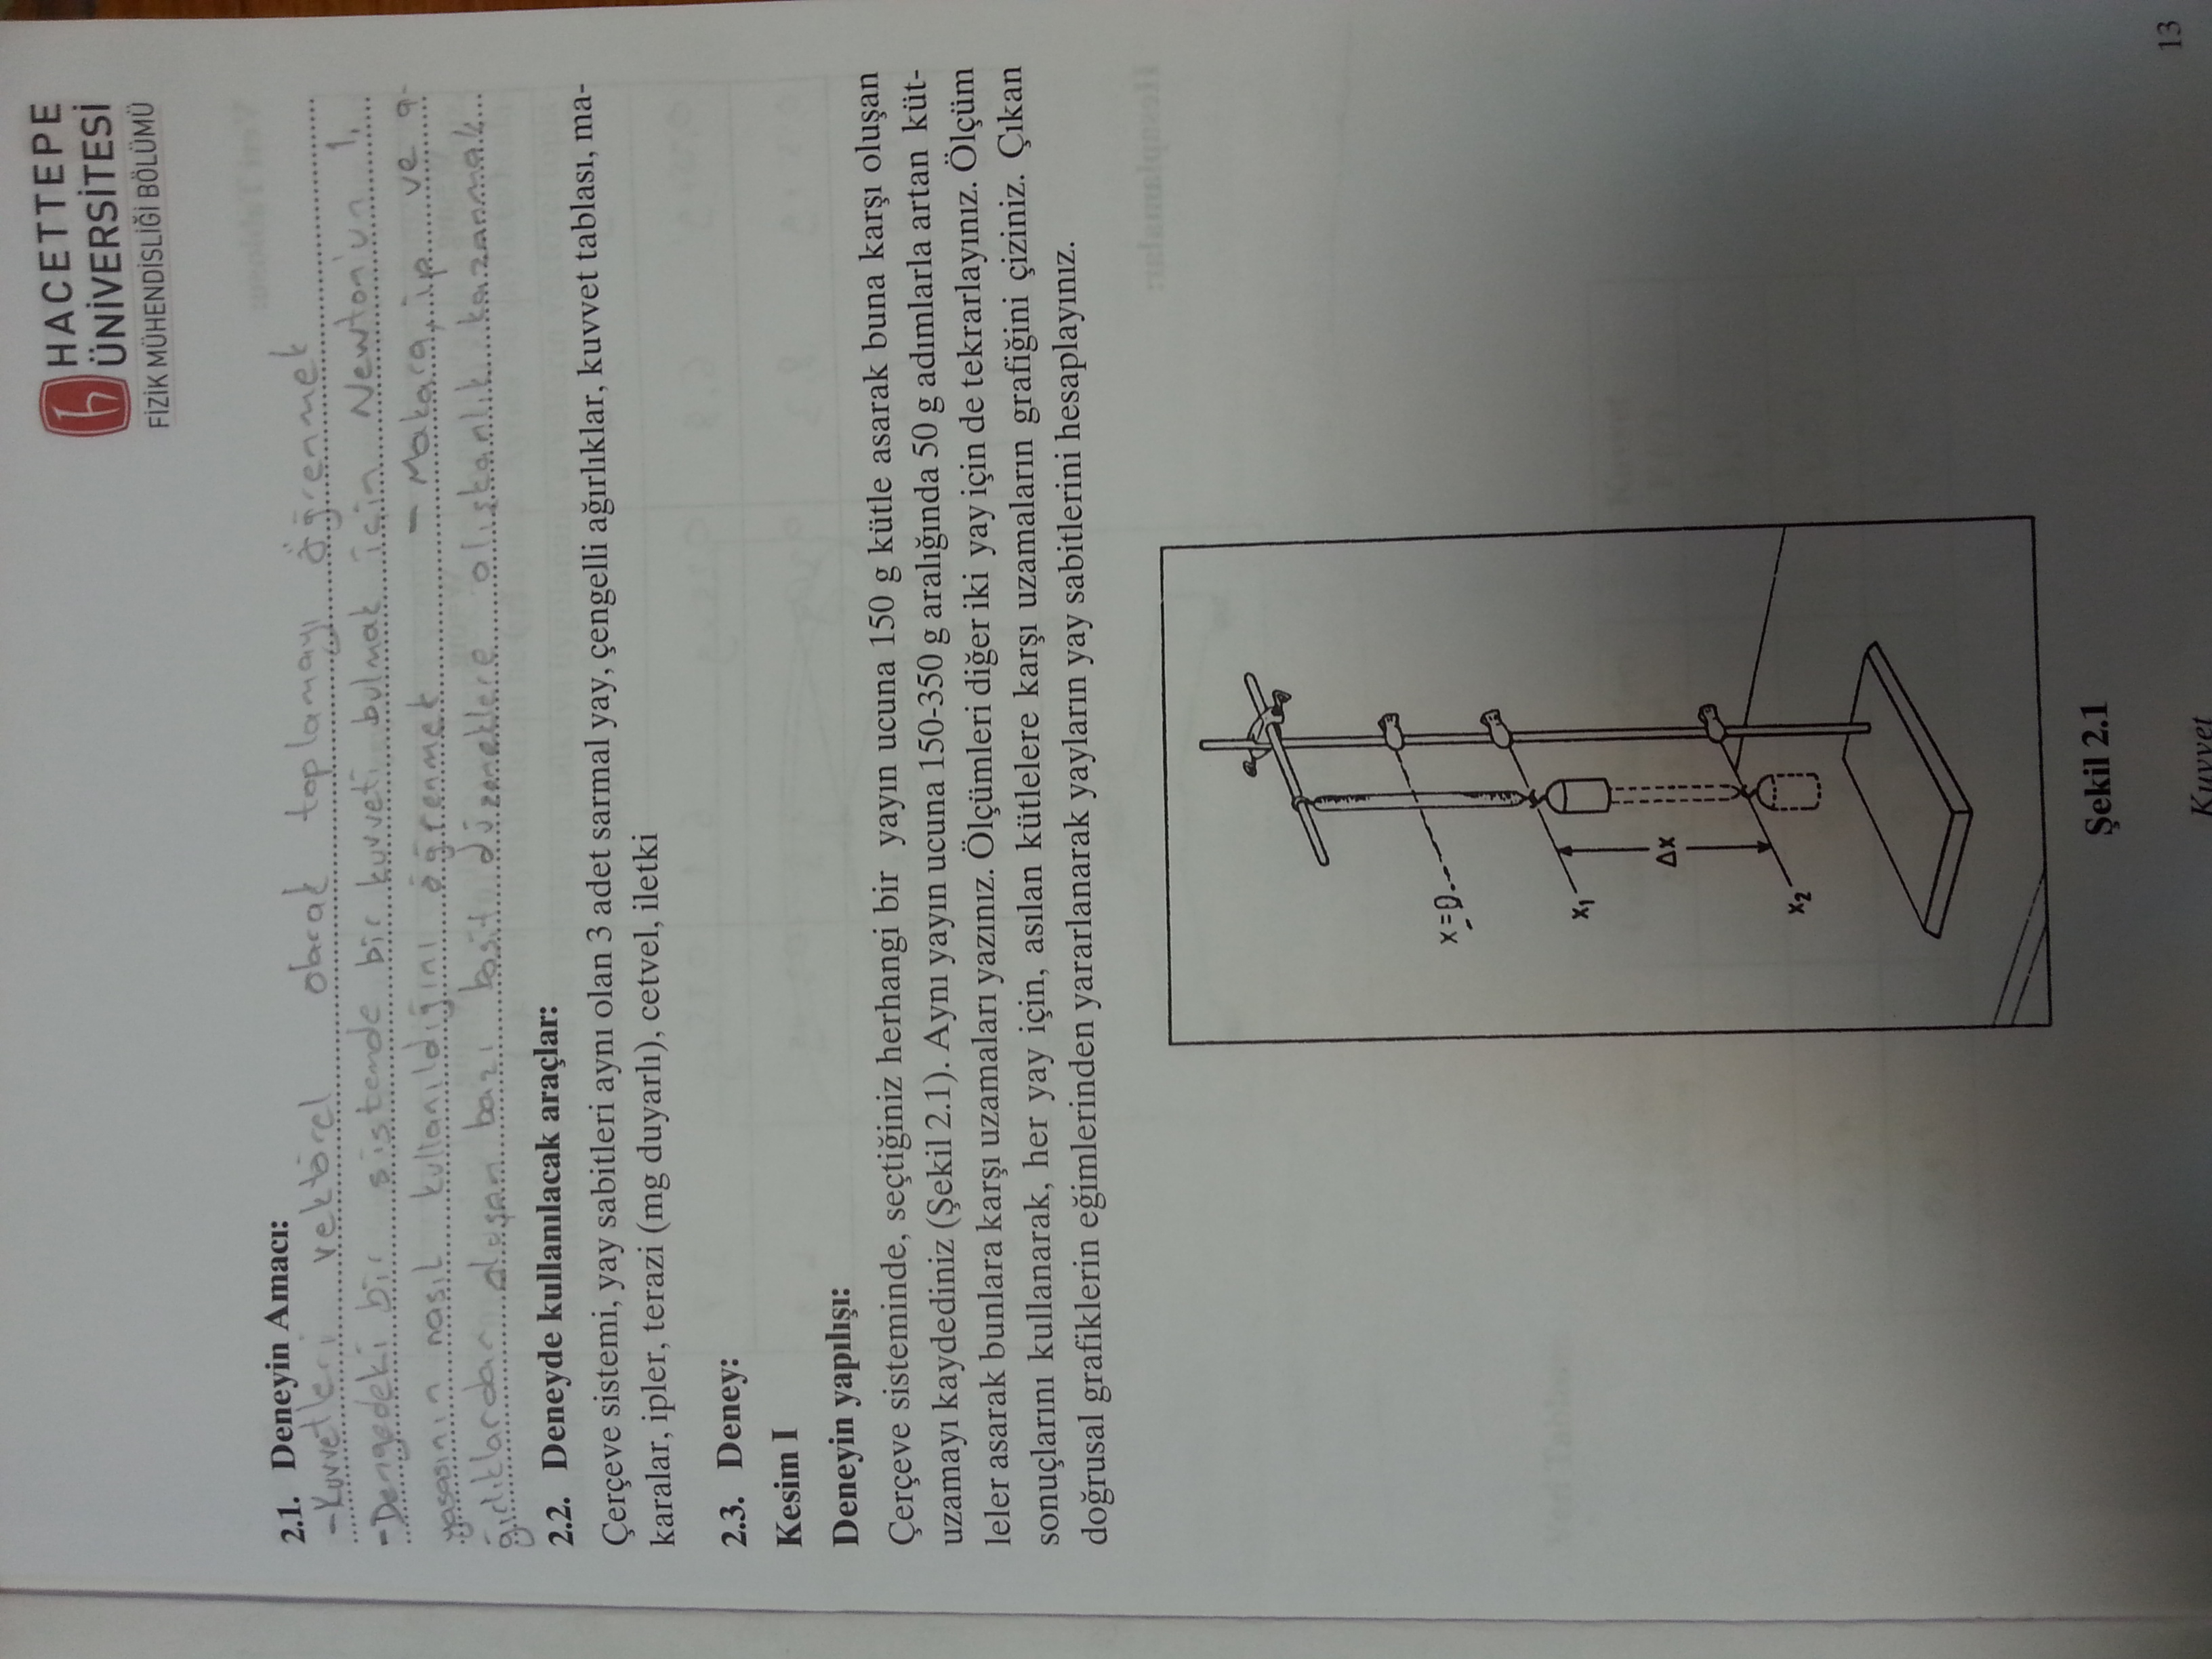 HACETTEPE
ÜNİVERSİTESİ
FİZİK MÜHENDİSLİĞİ BÖLÜMÜ
2.1. Deneyin Amacı:
-Kuvvetleri vektörel olarak toplamayı öğrenmek
-Dengedeki bir sistemde bir kuvveti bulmak için Newton'un 1.
yasasının nasıl kullanıldığını öğrenmek - Makara, ip ve a-
ğırlıklardan oluşan bazı basit düzeneklere alışkanlık kazanmak
2.2. Deneyde kullanılacak araçlar:
Çerçeve sistemi, yay sabitleri aynı olan 3 adet sarmal yay, çengelli ağırlıklar, kuvvet tablası, ma-
karalar, ipler, terazi (mg duyarlı), cetvel, iletki
2.3. Deney:
Kesim I
Deneyin yapılışı:
Çerçeve sisteminde, seçtiğiniz herhangi bir yayın ucuna 150 g kütle asarak buna karşı oluşan
uzamayı kaydediniz (Şekil 2.1). Aynı yayın ucuna 150-350 g aralığında 50 g adımlarla artan küt-
leler asarak bunlara karşı uzamaları yazınız. Ölçümleri diğer iki yay için de tekrarlayınız. Ölçüm
sonuçlarını kullanarak, her yay için, asılan kütlelere karşı uzamaların grafiğini çiziniz. Çıkan
doğrusal grafiklerin eğimlerinden yararlanarak yayların yay sabitlerini hesaplayınız.
x=0
x1
Δx
x2
Şekil 2.1
13
Kuvvet